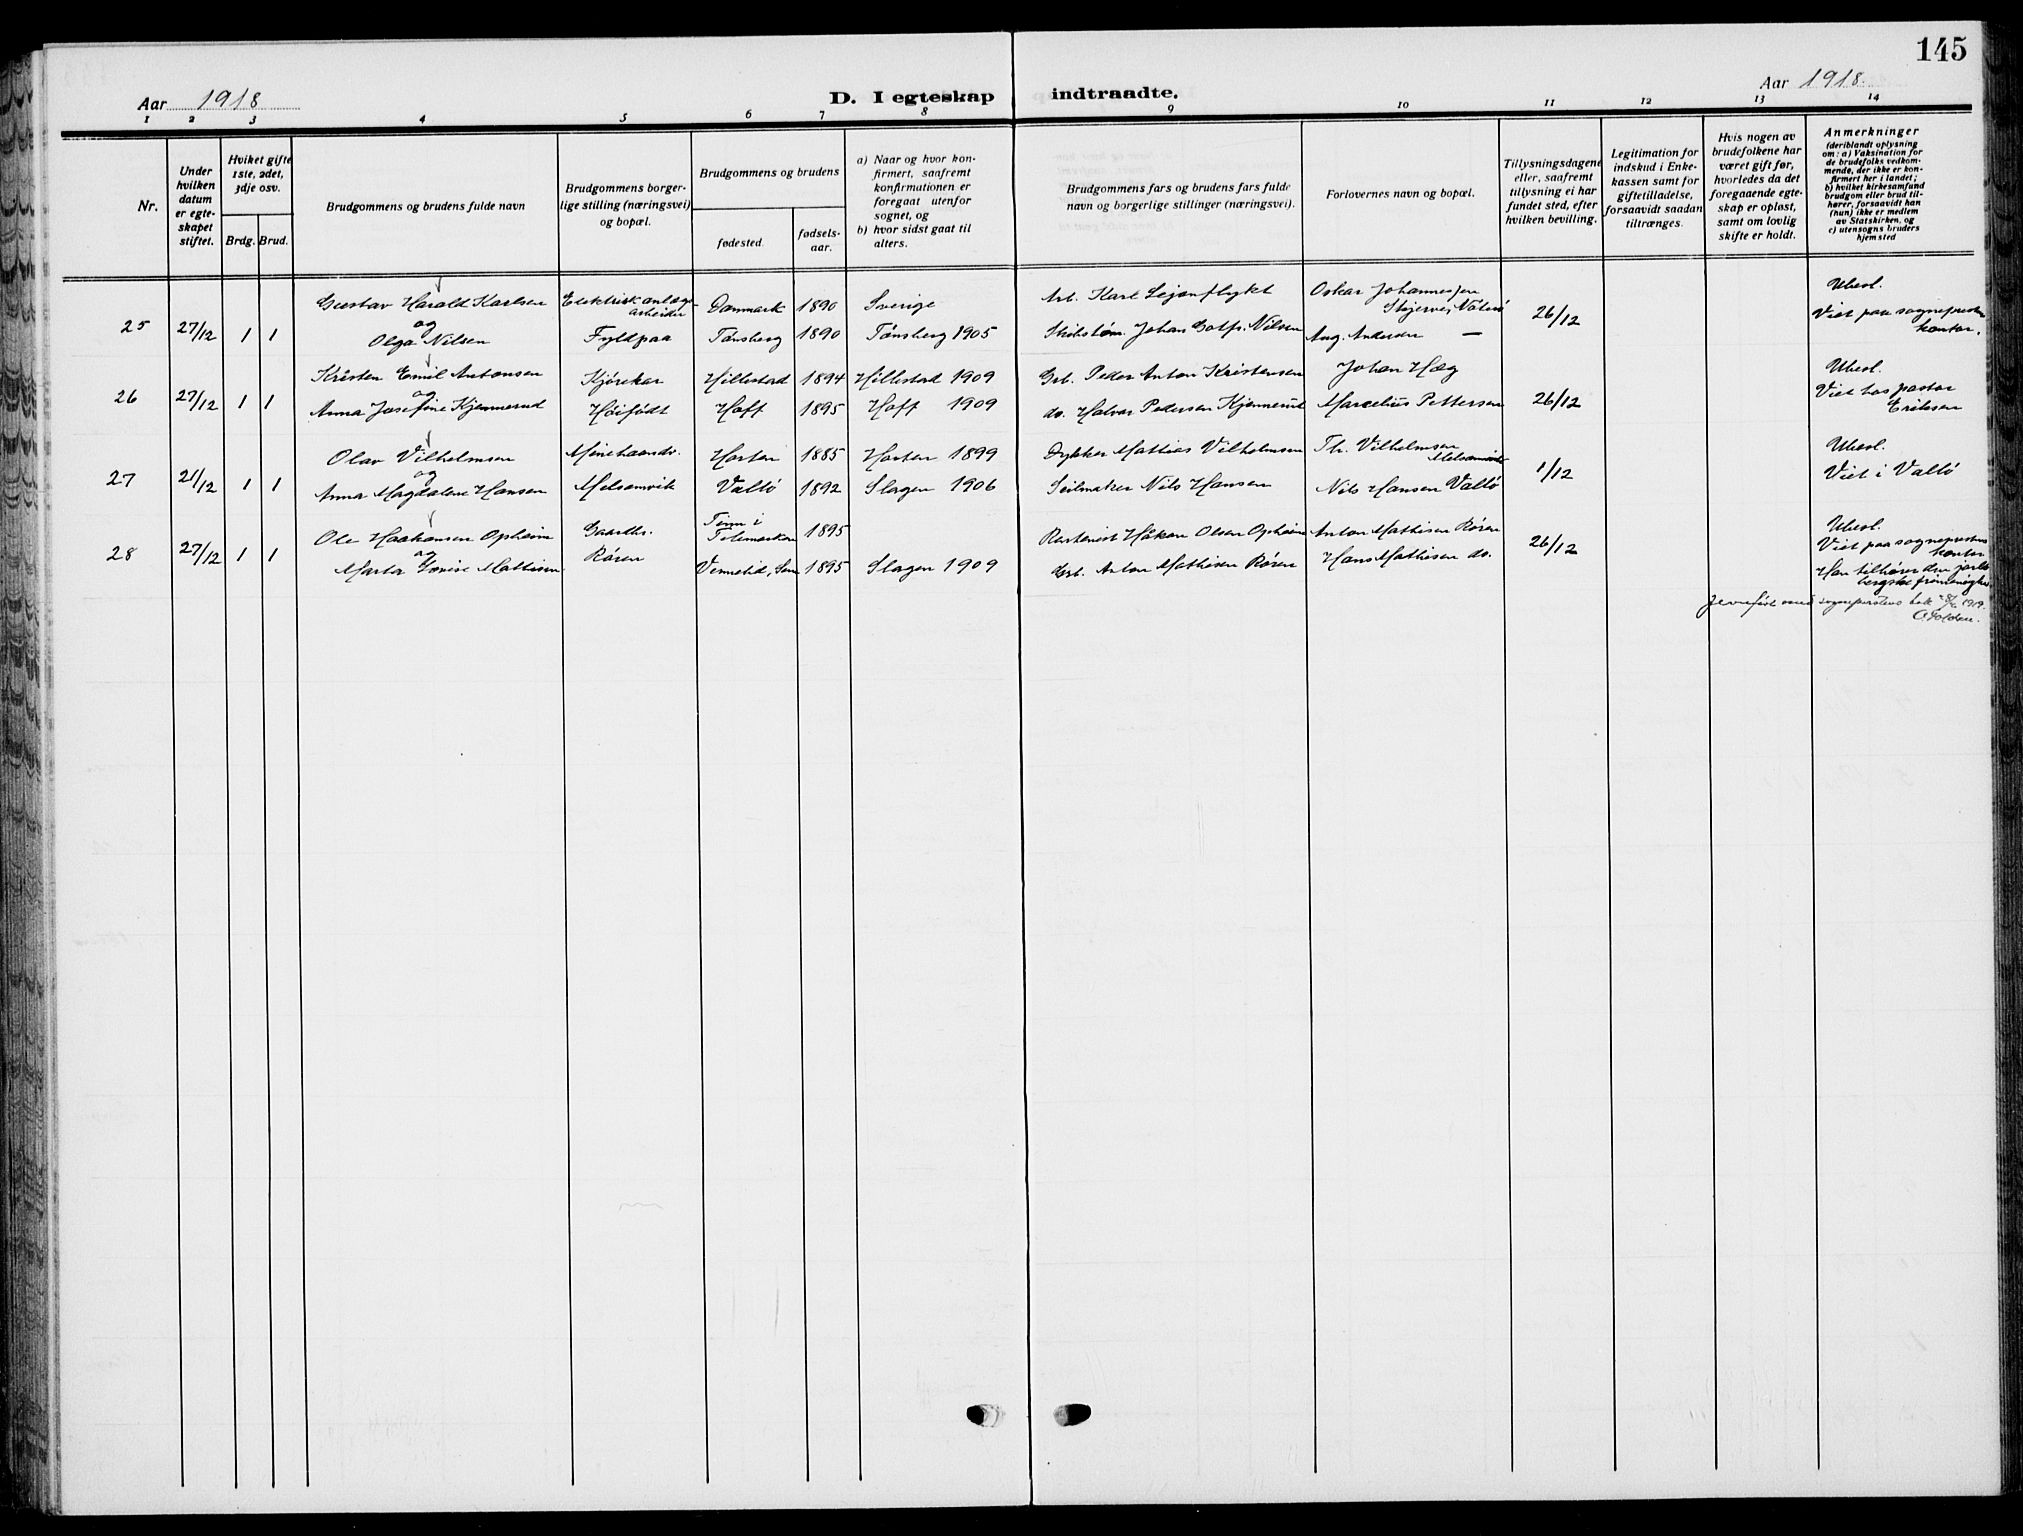 145
Aar 1918
D. I egteskap indtraadte.
Aar 1918.
1 2 3 4 5 6 7 8 9 10 11 12 13 14
Nr.
Under
hvilken
datum
er egte-
skapet
stiftet.
Hvilket gifte
1ste, 2det,
3dje osv.
Brdg. Brud.
Brudgommens og brudens fulde navn
Brudgommens borger-
lige stilling (næringsvei)
og bopæl.
Brudgommens og brudens
fødested.
fødsels-
aar.
a) Naar og hvor kon-
firmert, saafremt
konfirmationen er
foregaat utenfor
sognet, og
b) hvor sidst gaat til
alters.
Brudgommens fars og brudens fars fulde
navn og borgerlige stillinger (næringsvei).
Forlovernes navn og bopæl.
Tillysningsdagene
eller, saafremt
tillysning ei har
fundet sted, efter
hvilken bevilling.
Legitimation for
indskud i Enke-
kassen samt for
giftetilladelse,
forsaavidt saadan
tiltrænges.
Hvis nogen av
brudefolkene har
været gift før,
hvorledes da det
foregaaende egte-
skap er opløst,
samt om lovlig
skifte er holdt.
Anmerkninger
(deriblandt oplysning
om: a) Vaksination for
de brudefolks vedkom-
mende, der ikke er kon-
firmert her i landet;
b) hvilket kirkesamfund
brudgom eller brud til-
hører, forsaavidt han
(hun) ikke er medlem
av Statskirken, og
c) utensogns bruders
hjemsted
25 27/12 1 1
Gustav Harald Karlsen
og
Olga Nilsen
Elektrisk anlægs-
arbeider
Fyldpaa
Danmark 1890 Sverige
Tønsberg 1890 Tønsberg 1905
Arb. Karl Lejonflykt
Johan Gotfr. Nilsen
Oskar Johannessen
Nøterø
Aug. Andersen —
26/12
Ubesl.
Viet paa sogneprestens
kontor.
26 27/12 1 1
Kristen Emil Antonsen
og
Anna Josefine Kjennerud
Kjørekar
Høifødt
Hillestad 1894 Hillestad 1909
Hoff 1895 Hoff 1909
Grb. Peder Anton Kristensen
do. Halvor Pedersen Kjennerud
Johan Hæg
Marcelius Pettersen
26/12
Ubesl.
Viet hos pastor
Eriksen
27 21/12 1 1
Olav Vilhelmsen
og
Anna Magdalene Hansen
Melsomvik
Horten 1885 Horten 1899
Vallø 1892 Slagen 1906
Dykker Mathias Vilhelmsen
Seilmaker Nils Hansen
Th. Vilhelmsen
Melsomvik
Nils Hansen Vallø
1/12
Ubesl.
Viet i Vallø
28 27/12 1 1
Ole Haakonsen Opheim
og
Marta Lovise Mathisen
Gaardbr.
Røren
Tinn i
Telemarken 1895
Vennelid, Sem 1895 Slagen 1909
Håkon Olsen Opheim
Grb. Anton Mathisen Røren
Anton Mathisen Røren
Hans Mathisen do.
26/12
Ubesl.
Viet paa sogneprestens
kontor
Han tilhører den jarls-
bergske frimenighet
Jevnført med sogneprestens bok 1919.